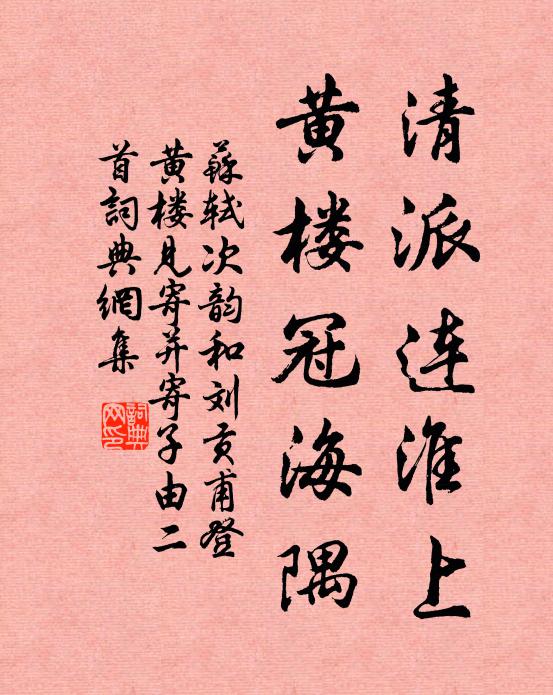 清派连淮上
黄楼冠海隅
蘇轼次韵和刘贡甫登
黄楼见寄并寄子由二
首詞典網集
詞典
网印